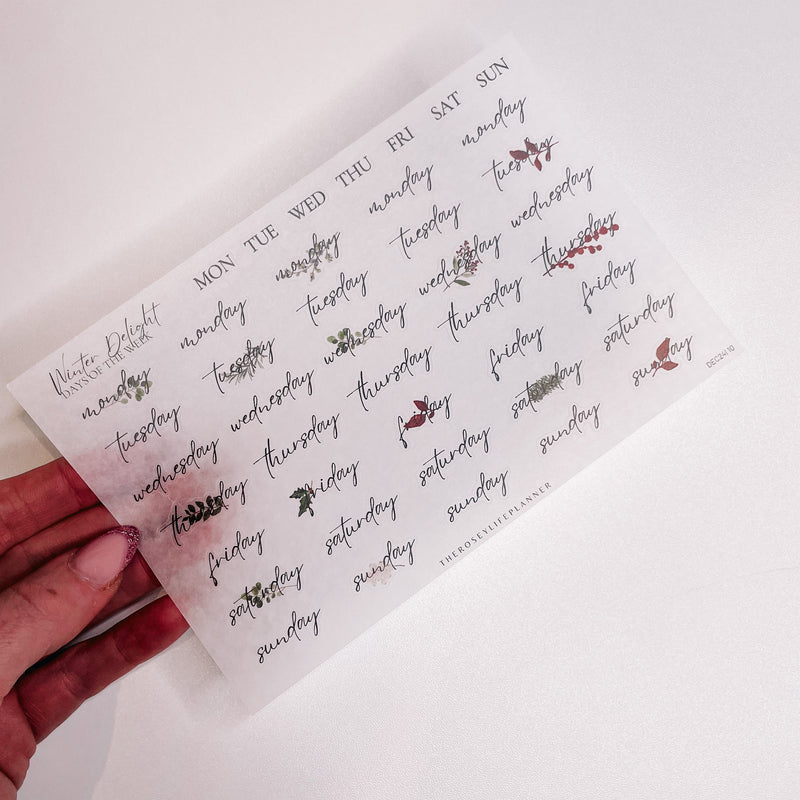 Winter Delight
DAYS OF THE WEEK
MON TUE WED THU FRI SAT SUN
monday monday monday monday monday
tuesday tuesday tuesday tuesday tuesday
wednesday wednesday wednesday wednesday wednesday
thursday thursday thursday thursday thursday
friday friday friday friday friday
saturday saturday saturday saturday saturday
sunday sunday sunday sunday sunday
THEROSEYLIFEPLANNER